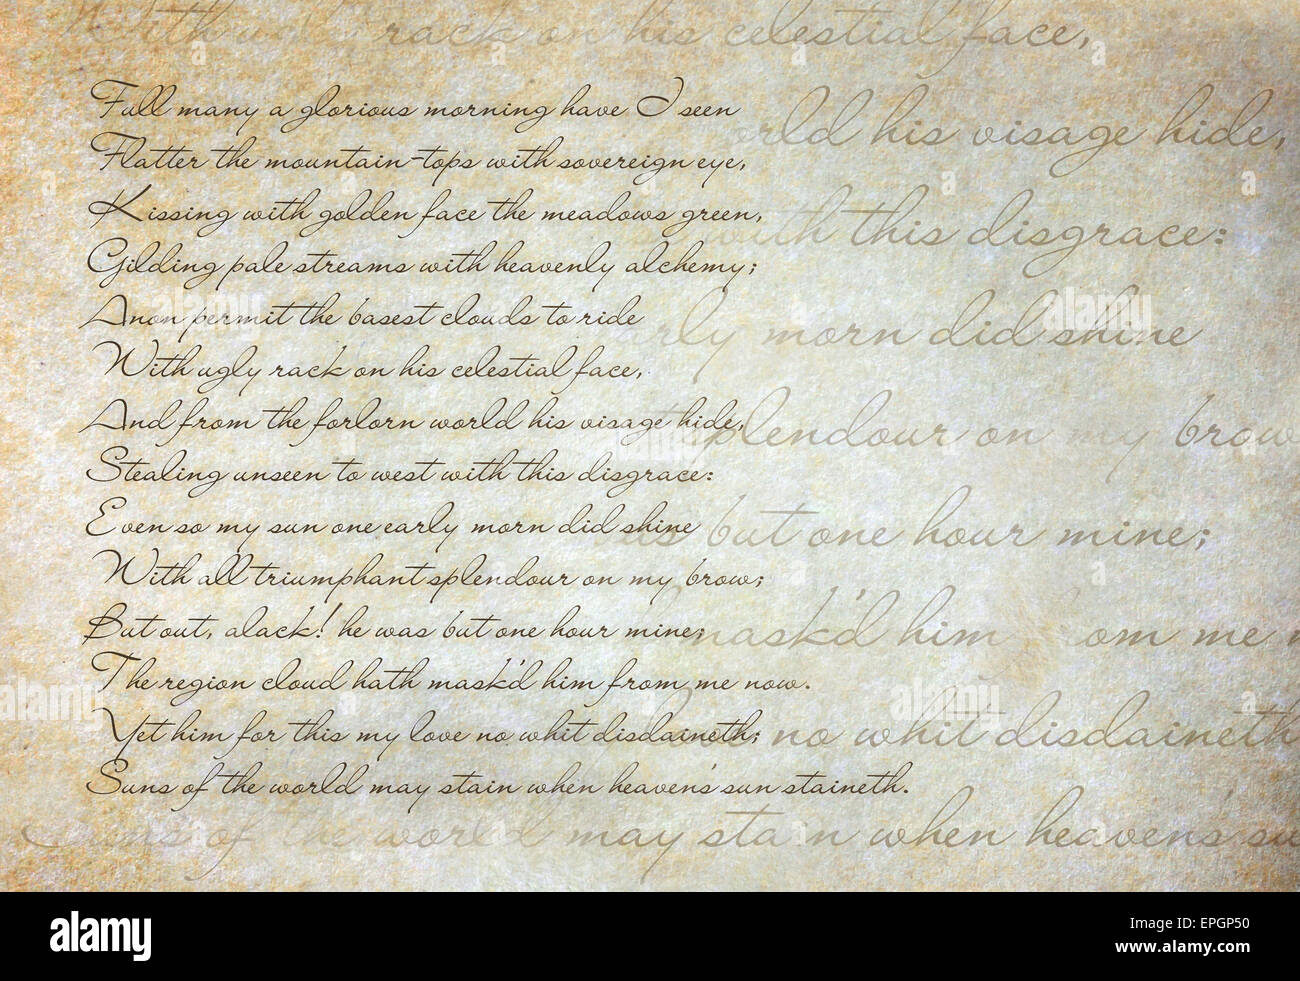 With ugly rack on his celestial face,
Full many a glorious morning have I seen
orld his visage hide,
Flatter the mountain-tops with sovereign eye,
Kissing with golden face the meadows green,
with this disgrace:
Gilding pale streams with heavenly alchemy;
Anon permit the basest clouds to ride
arly morn did shine
With ugly rack on his celestial face,
And from the forlorn world his visage hide,
splendour on my brow
Stealing unseen to west with this disgrace:
Even so my sun one early morn did shine
as but one hour mine;
With all triumphant splendour on my brow;
But out, alack! he was but one hour mine;
mask'd him from me n
The region cloud hath mask'd him from me now.
Yet him for this my love no whit disdaineth;
love no whit disdaineth
Suns of the world may stain when heaven's sun staineth.
Suns of the world may stain when heaven's su
alamy stock photo
a
alamy
EPGP50
www.alamy.com